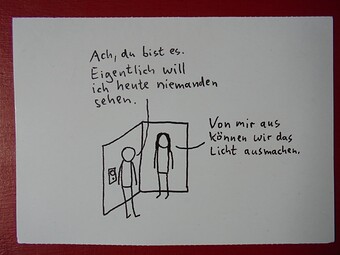 Ach, du bist es.
Eigentlich will
ich heute niemanden
sehen.
Von mir aus
können wir das
Licht ausmachen.